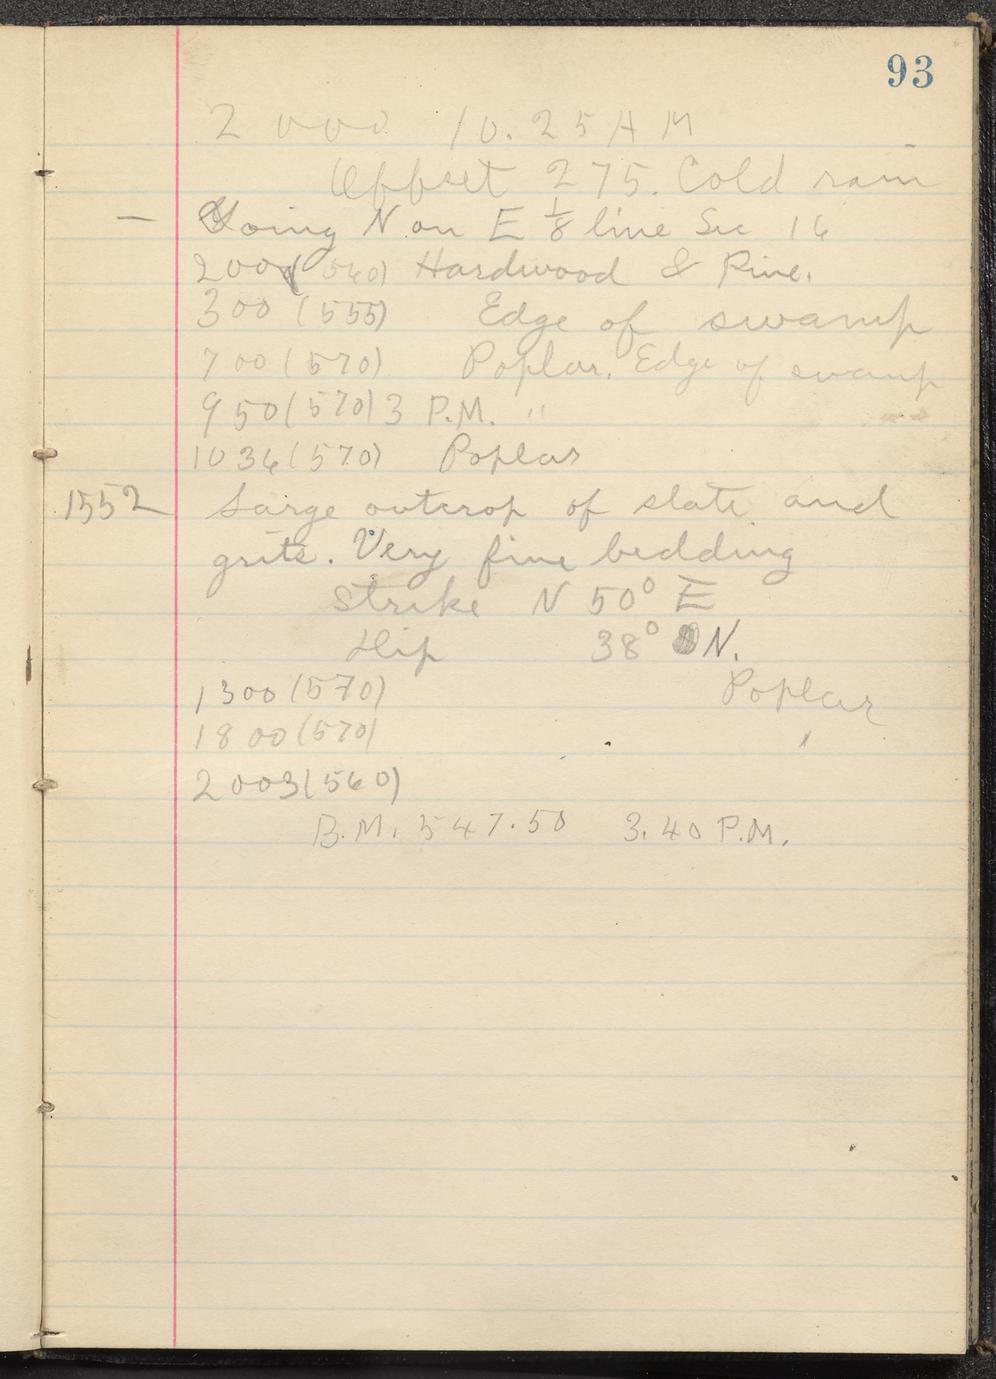 93
2000 10.25 A M
Offset 275. Cold rain
— Going N on E 1/8 line Sec 16
200 (540) Hardwood & Pine.
300 (555) Edge of swamp
700 (570) Poplar. Edge of swamp
950 (570) 3 P.M. "
1036 (570) Poplar
1552 Large outcrop of slate and
grits. Very fine bedding
Strike N 50° E
Dip 38° N.
1300 (570) Poplar
1800 (570) "
2003 (560)
B.M. 547.50 3.40 P.M.